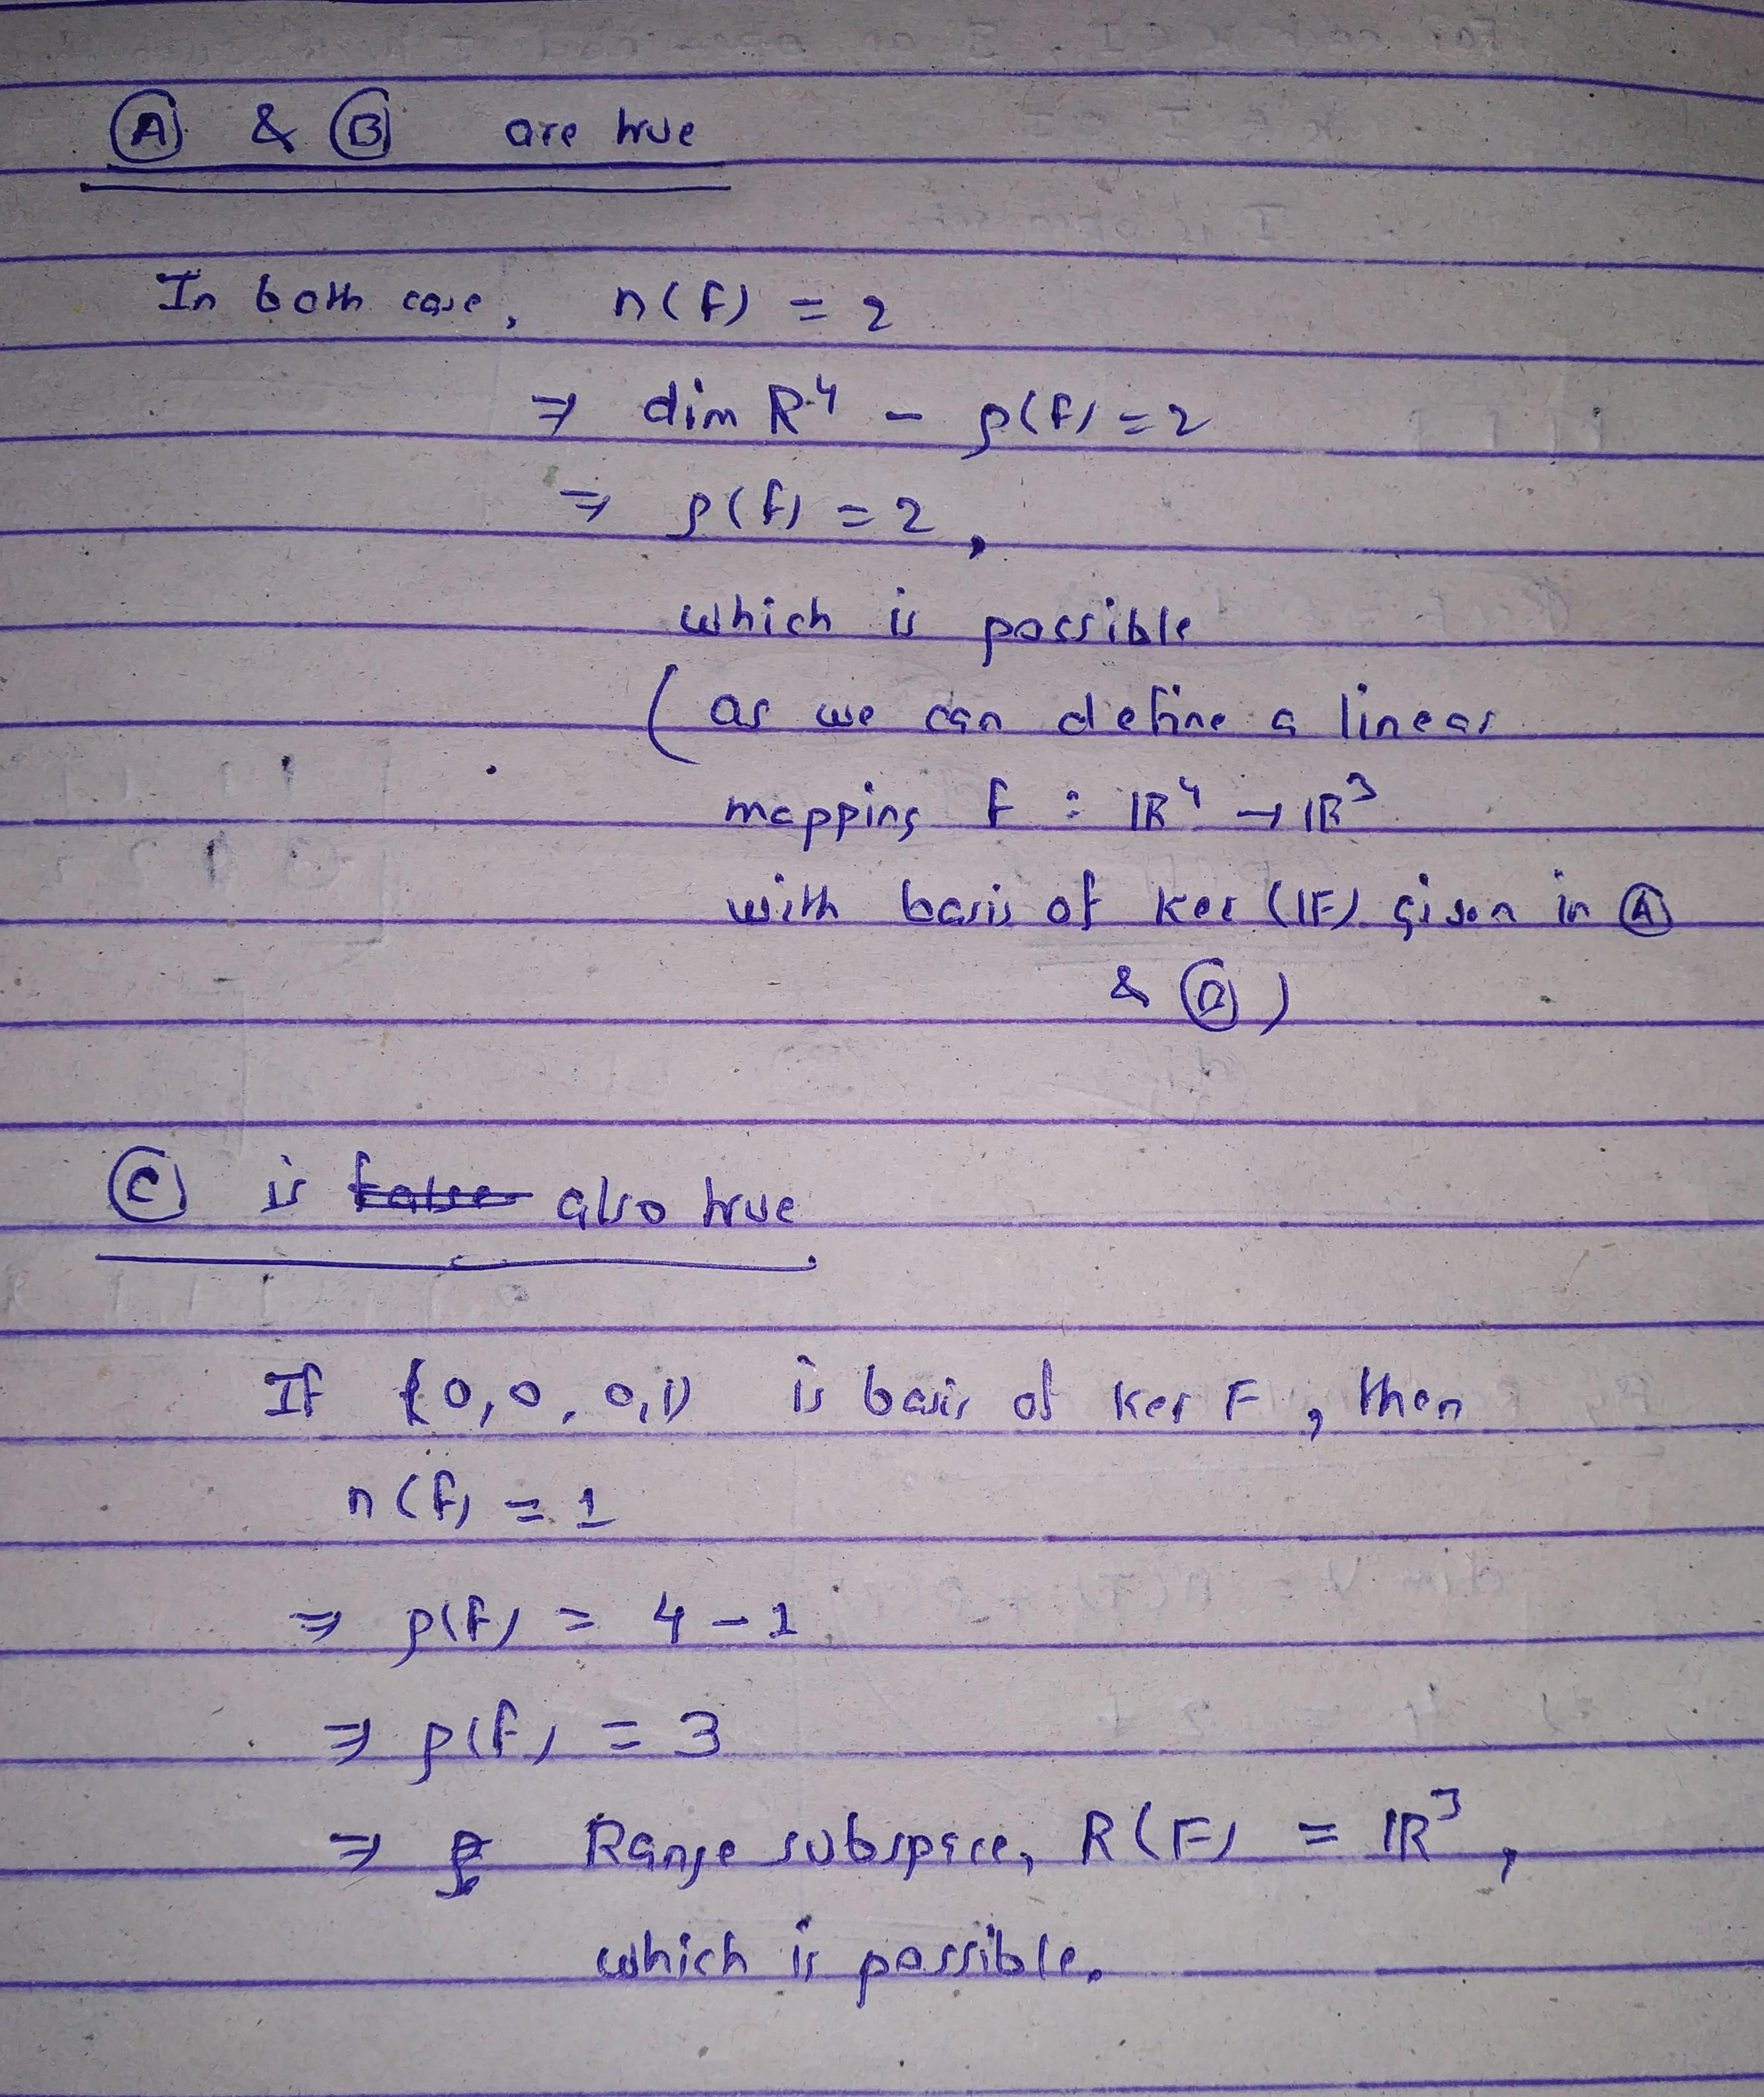 Ⓐ & Ⓑ are true
In both case, n(F) = 2
⇒ dim R⁴ - ρ(F) = 2
⇒ ρ(F) = 2,
which is possible
(as we can define a linear
mapping F : ℝ⁴ → ℝ³
with basis of Ker (F) given in Ⓐ
& Ⓑ)
Ⓒ is false also true
If (0,0,0,1) is basis of Ker F, then
n(F) = 1
⇒ ρ(F) = 4 - 1
⇒ ρ(F) = 3
⇒ Range subspace, R(F) = ℝ³,
which is possible.